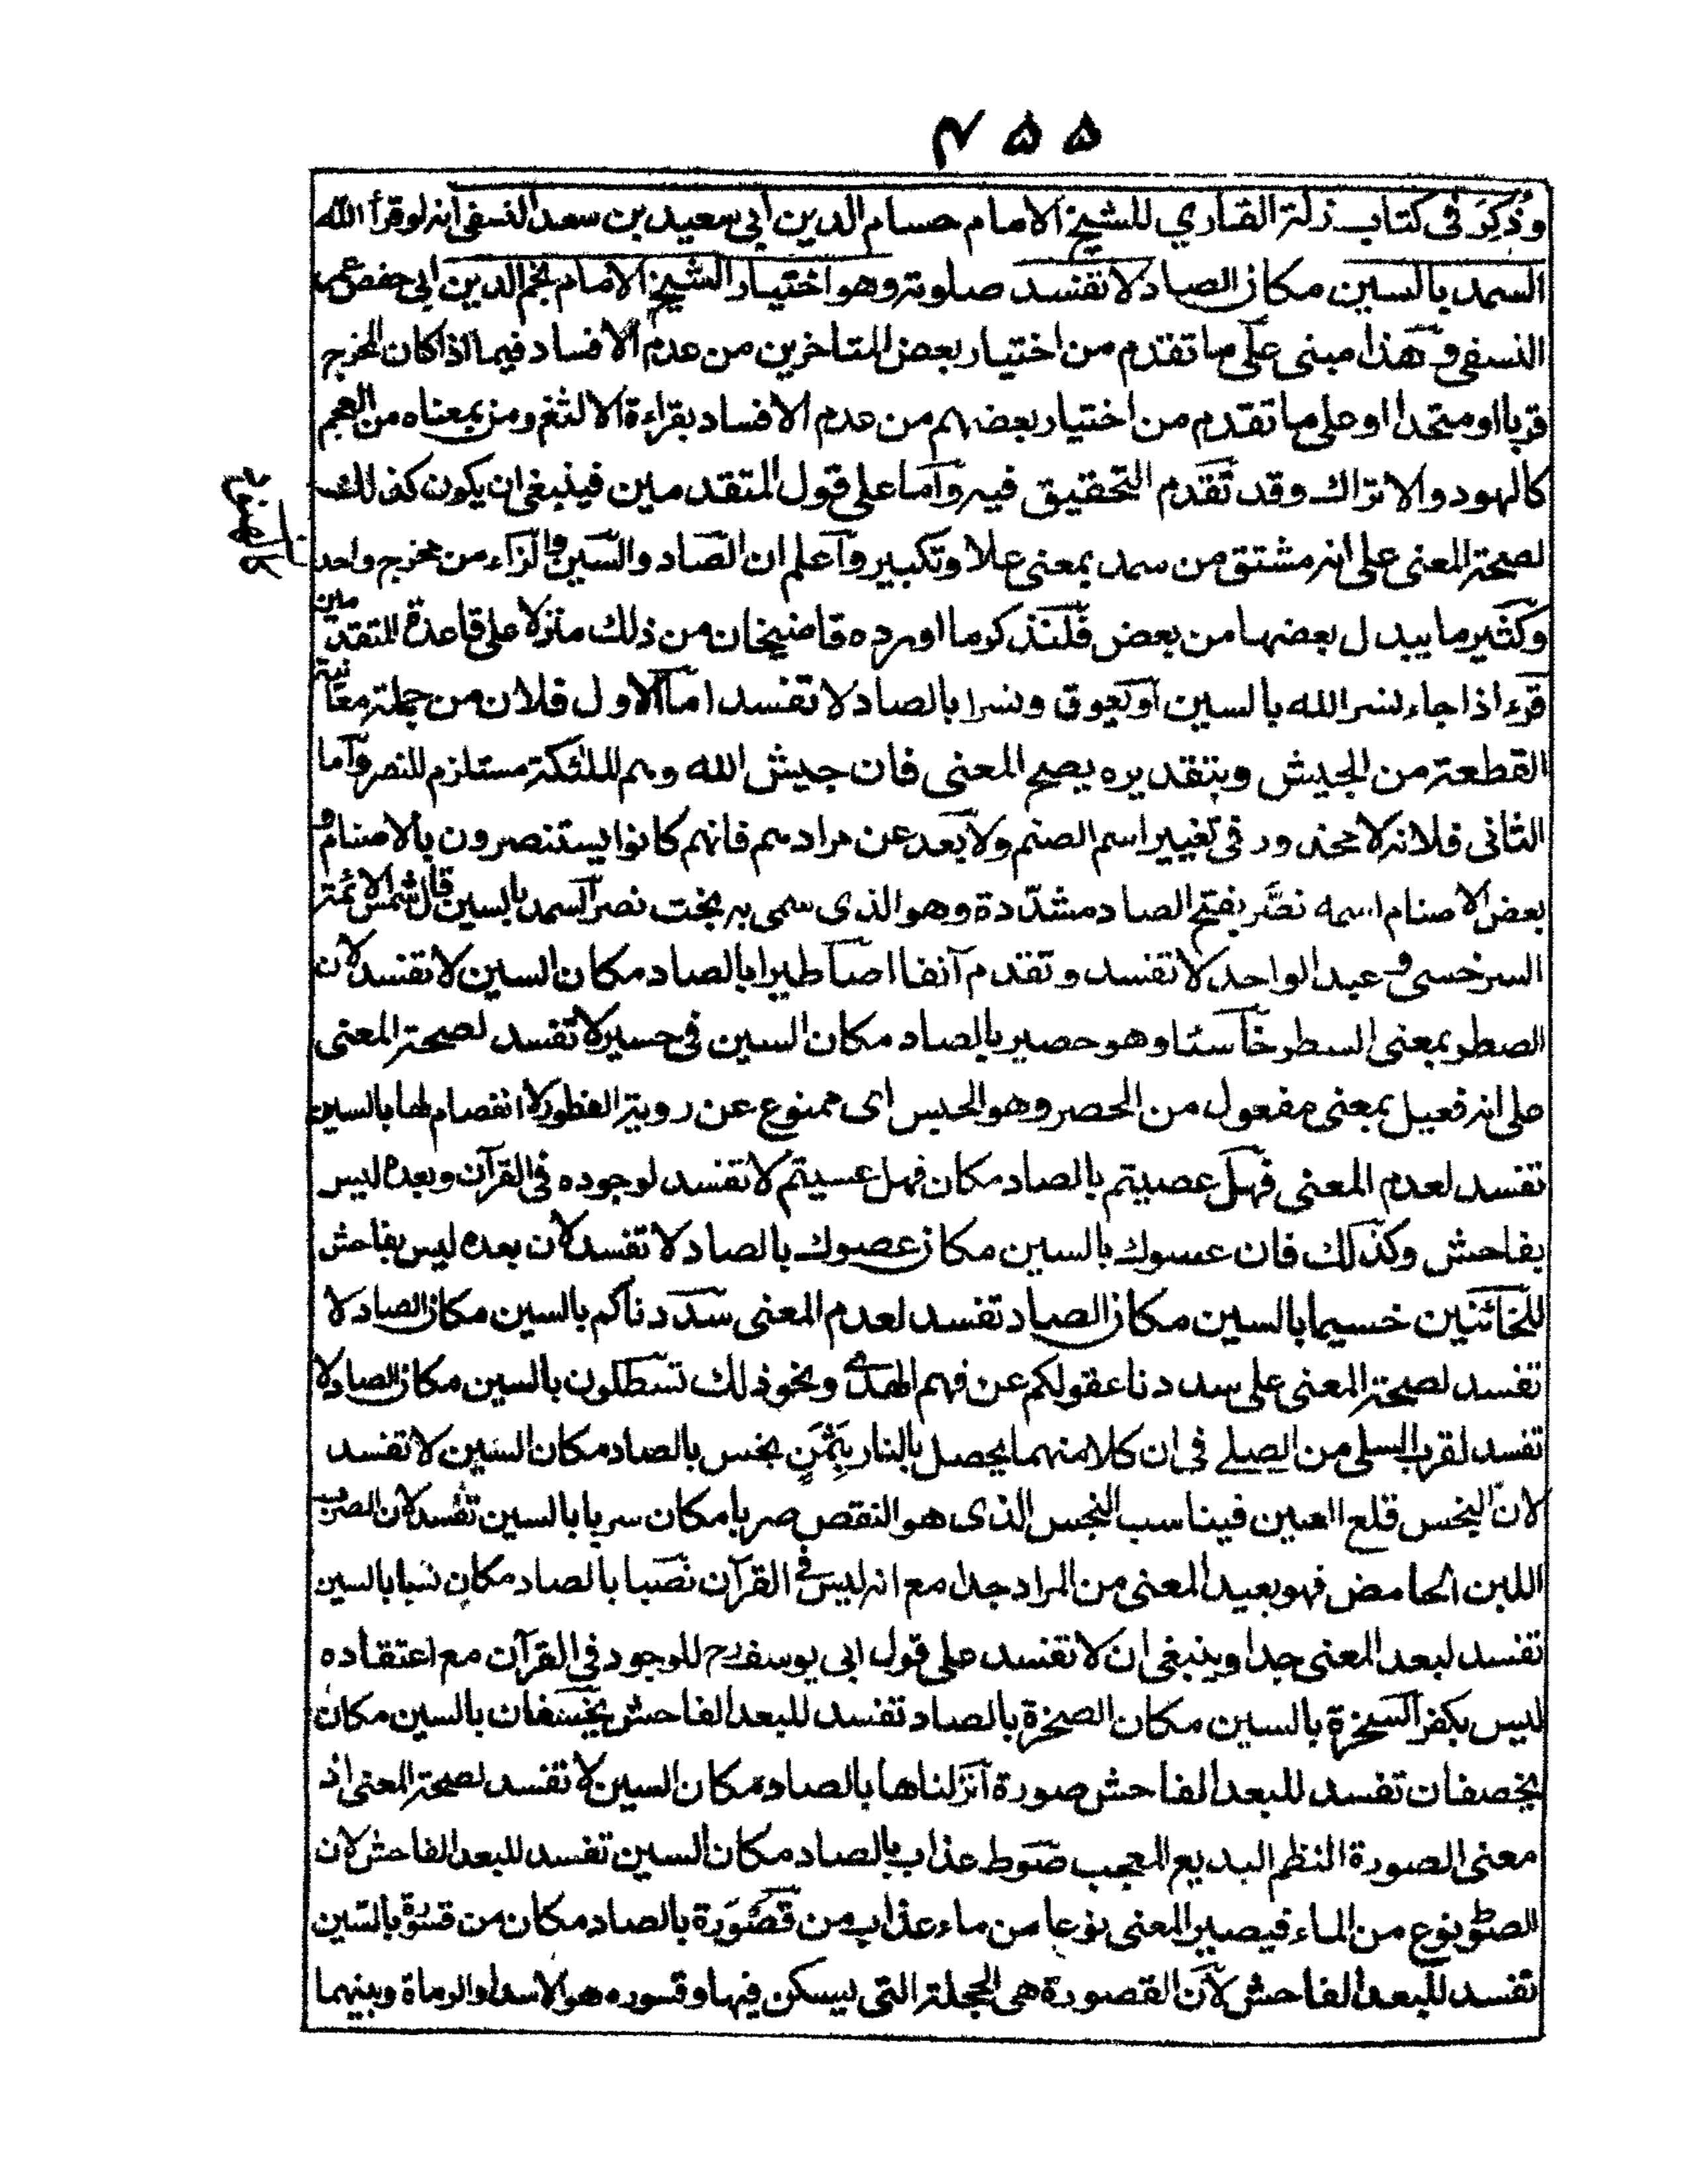 ٤٥٥
وذكر في كتاب زلة القاري للشيخ الامام حسام الدين ابي سعيد بن سعد النسفي انه لو قرأ الله
السمد بالسين مكان الصاد لا تفسد صلوته وهو اختيار الشيخ الامام نجم الدين ابي حفص عمر
النسفي وهذا مبنى على ما تقدم من اختيار بعض المتاخرين من عدم الافساد فيما اذا كان المخرج
قريبا او متحدا او على ما تقدم من اختيار بعضهم من عدم الافساد بقراءة الالثغ ومن بمعناه من العجم
كالهنود والاتراك وقد تقدم التحقيق فيه وأما على قول المتقدمين فينبغي ان يكون كذلك
لصحة المعنى على انه مشتق من سمد بمعنى علا وتكبير وآعلم ان الصاد والسين والزاء من مخرج واحد
وكثير ما يبدل بعضها من بعض فلنذكر ما اورده قاضيخان من ذلك منزلا على قاعدة المتقدمين
قرء اذا جاء نسر الله بالسين او يعوق ونسرا بالصاد لا تفسد اما الاول فلان من جملة معانيه
القطعة من الجيش وبتقديره يصح المعنى فان جيش الله وهم الملئكة مستلزم للنصر وآما
الثاني فلانه لا محذور في تغيير اسم الصنم ولا بعد عن مرادهم فانهم كانوا يستنصرون بالاصنام و
بعض الاصنام اسمه نصّر بفتح الصاد مشدّدة وهو الذى سمى به بخت نصر السمد بالسين قال شمس الائمة
السرخسي وعبد الواحد لا تفسد وتقدم آنفا اصاطيرا بالصاد مكان السين لا تفسد لان
الصطر بمعنى السطر خاسئا وهو حصير بالصاد مكان السين في حسير لا تفسد لصحة المعنى
على انه فعيل بمعنى مفعول من الحصر وهو الحبس اى ممنوع عن روية الفطور لا انفصام لها بالسين
تفسد لعدم المعنى فهل عصيتم بالصاد مكان فهل عسيتم لا تفسد لوجوده في القرآن وبعده ليس
بفاحش وكذلك فان عسوك بالسين مكان عصوك بالصاد لا تفسد لان بعده ليس بفاحش
للخائنين خسيما بالسين مكان الصاد تفسد لعدم المعنى سددناكم بالسين مكان الصاد لا
تفسد لصحة المعنى على سددنا عقولكم عن فهم الهدى ونحو ذلك تسطلون بالسين مكان الصاد لا
تفسد لقرب السلى من الصلى في ان كلا منهما يحصل بالنار بِثَمَنٍ بخس بالصاد مكان السين لا تفسد
لانّ البخس قلع العين فيناسب النجس الذى هو النقص صربا مكان سربا بالسين تفسد لان الصرب
اللبن الحامض فهو بعيد المعنى من المراد جدا مع انه ليس في القرآن نصبا بالصاد مكان نسبا بالسين
تفسد لبعد المعنى جدا وينبغي ان لا تفسد على قول ابي يوسف رح للوجود في القرآن مع اعتقاده
ليس بكفر السخرة بالسين مكان الصخرة بالصاد تفسد للبعد الفاحش يخسفان بالسين مكان
يخصفان تفسد للبعد الفاحش صورة آنزلناها بالصاد مكان السين لا تفسد لصحة المعنى اذ
معنى الصورة النظم البديع المعجب صوط عذاب بالصاد مكان السين تفسد للبعد الفاحش لان
الصوط نوع من الماء فيصير المعنى نوعا من ماء عذاب من قصورة بالصاد مكان من قسورة بالسين
تفسد للبعد الفاحش لان القصورة هي الحجلة التى يسكن فيها وقسوره هو الاسد او الرماة وبينهما